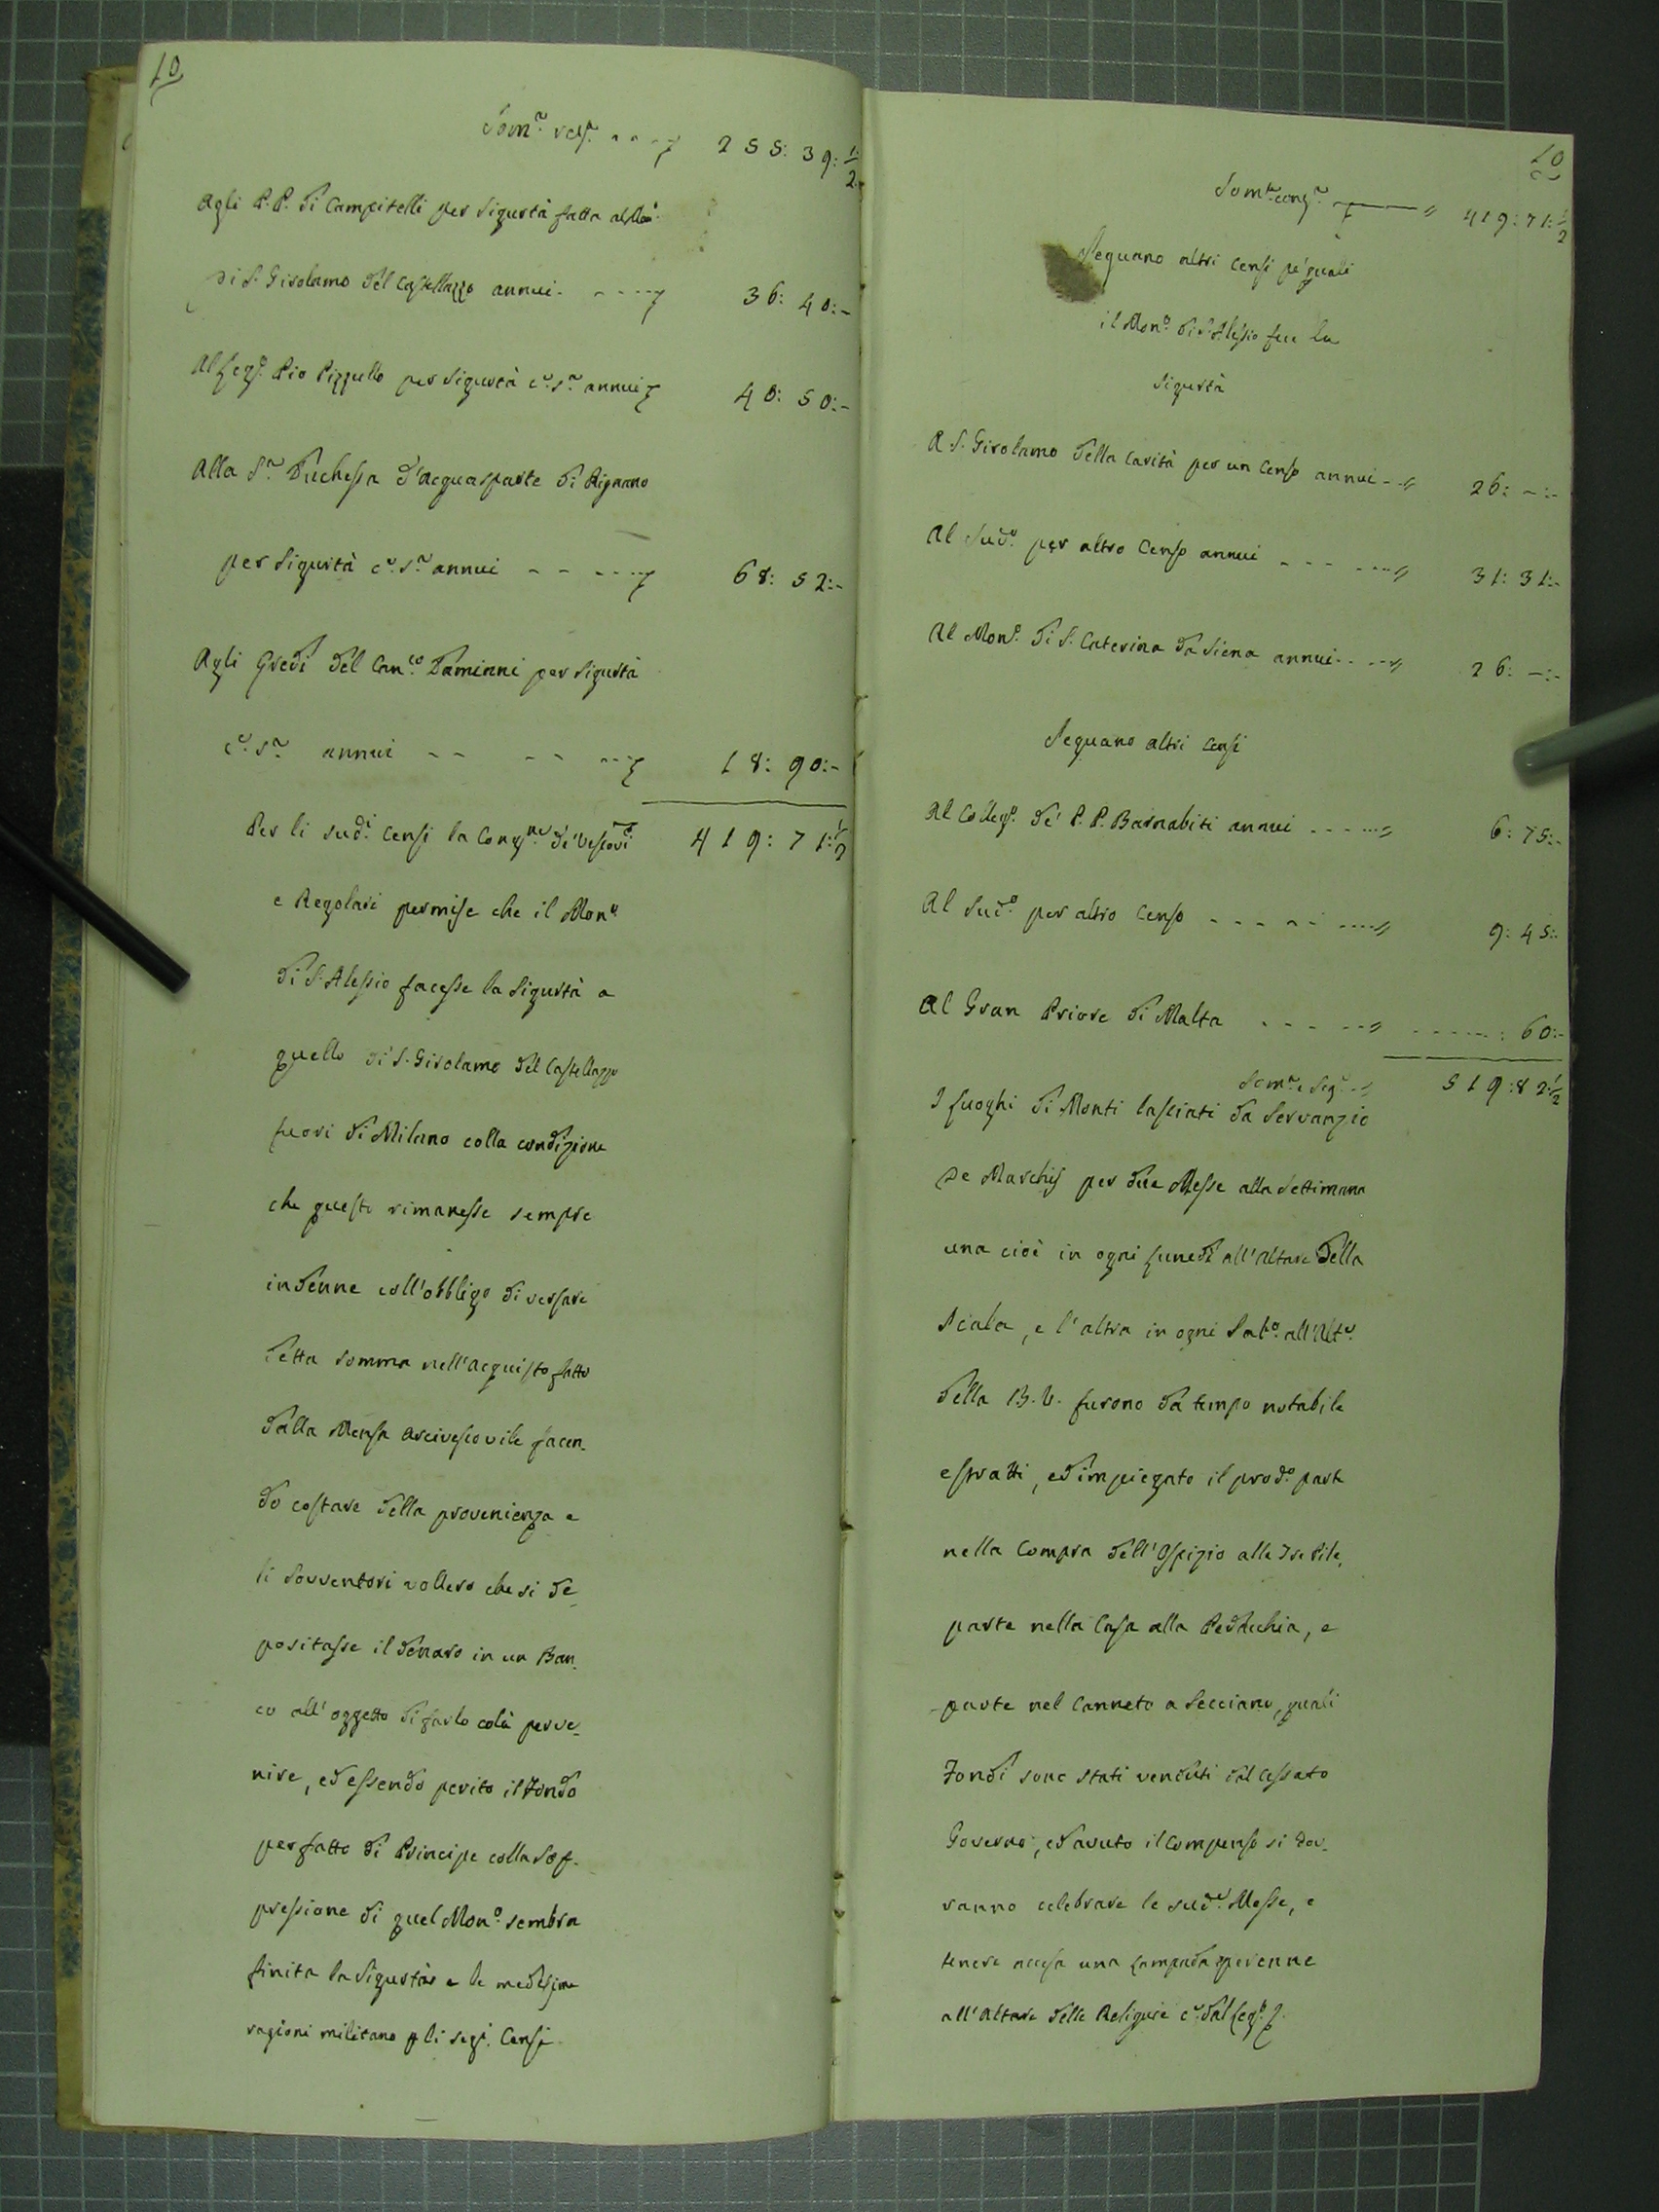 10
Som.ª 255: 39: 1/2
Agli P.P. di Campitelli per Sigurtà fatta al Mon.
di S. Girolamo del Castellazzo annui 36: 40:-
Al Pio Pizzullo per Sigurtà c.e s.a annui 40: 50:-
Alla S.ra Duchessa d'Acquasparte di Rignano
per Sigurtà c.e s.a annui 68: 52:-
Agli Eredi del Can.co Damianni per Sigurtà
c.e s.a annui 18: 90:-
Per li sud.i Censi la Cong.ne de' Vescovi 419: 71: 1/2
e Regolari permise che il Mon.o
di S. Alessio facesse la Sigurtà a
quello di S. Girolamo del Castellazzo
fuori di Milano colla condizione
che questo rimanesse sempre
indenne coll'obbligo di versare
detta somma nell'acquisto fatto
dalla Mensa Arcivescovile facen-
do costare della provenienza e
li sovventori vollero che si de-
positasse il denaro in un Ban-
co all'oggetto di farlo colà perve-
nire, ed essendo perito il Fondo
per fatto di Principe colla Sop-
pressione di quel Mon.o sembra
finita la Sigurtà e le medesime
ragioni militano p li seg.i Censi
10
Som.a cong.a 419: 71: 1/2
Seguano altri Censi pe' quali
il Mon.o di S. Alessio fece la
Sigurtà
A S. Girolamo della Carità per un Censo annui 26: -:-
Al Sud.o per altro Censo annui 31: 31:-
Al Mon.o di S. Caterina da Siena annui 26: -:-
Seguano altri Censi
Al Colleg.o de' P.P. Barnabiti annui 6: 75:-
Al Sud.o per altro Censo 9: 45:-
Al Gran Priore di Malta : 60:-
Som.a e Seg.e 519: 82: 1/2
I Luoghi di Monti lasciati da Servanzio
de Marchis per due Messe alla Settimana
una cioè in ogni Lunedì all'Altare della
Scala, e l'altra in ogni Sab.o all'Alt.e
della B.V. furono da tempo notabile
estratti, ed impiegato il prod.o parte
nella Compra dell'Ospizio alle Tre Pile,
parte nella Casa alla Pedacchia, e
parte nel Canneto a Secciano, quali
Fondi sono stati venduti dal cessato
Governo, ed avuto il Compenso si dov-
ranno celebrare le sud.e Messe, e
tenere accesa una Lampada perenne
all'Altare delle Reliquie c.e dal